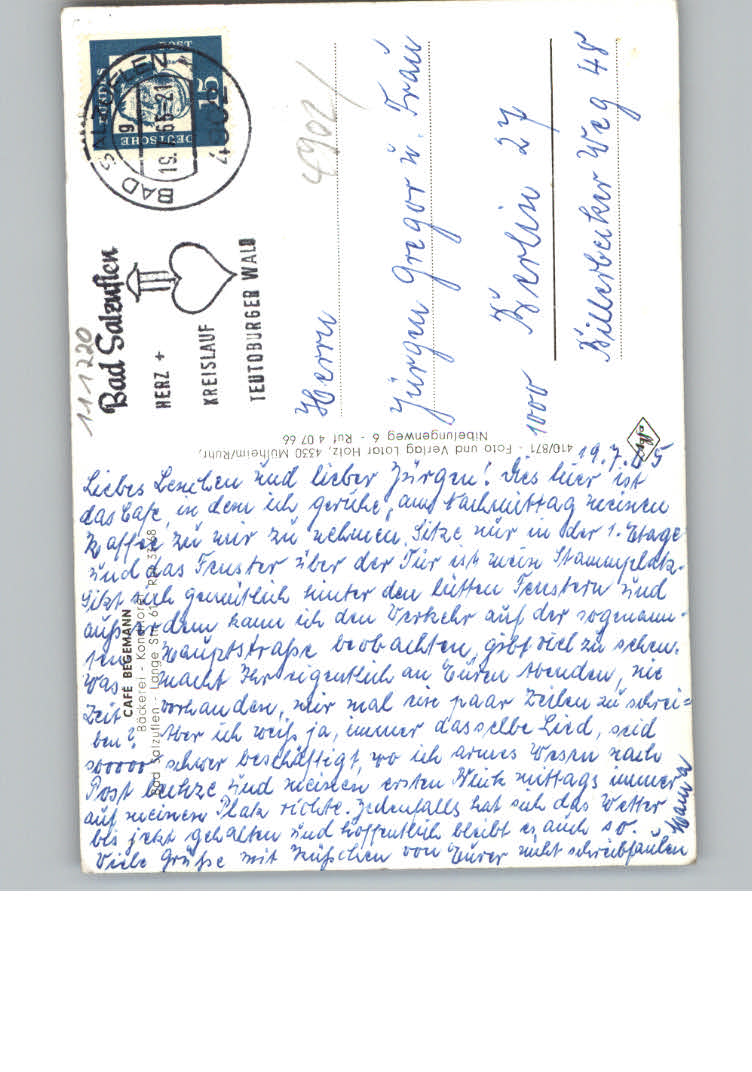 DEUTSCHE
BUNDESPOST
15
BAD SALZUFLEN
19.7.65-21
4902
Bad Salzuflen
HERZ +
KREISLAUF
TEUTOBURGER WALD
4902/
111220
Herrn
Jürgen Gregor u. Frau
1000 Berlin 27
Billerbecker Weg 48
410/871 - Foto und Verlag Lotar Holz, 4330 Mülheim/Ruhr,
Nibelungenweg 6 - Ruf 4 07 66
CAFÉ BEGEMANN
Bäckerei - Konditorei
Bad Salzuflen - Lange Str.
19.7.65
Liebes Lenchen und lieber Jürgen! Dies hier ist
das Café, in dem ich geruhe, am Nachmittag meinen
Kaffee zu mir zu nehmen. Sitze nur in der 1. Etage
und das Fenster über der Tür ist mein Stammplatz.
Sitzt sich gemütlich hinter den bunten Fenstern und
außerdem kann ich den Verkehr auf der sogenann-
ten Hauptstraße beobachten, gibt viel zu sehen.
Was macht Ihr eigentlich an Euren Abenden, nie
Zeit vorhanden, mir mal ein paar Zeilen zu schrei=
ben? Aber ich weiß ja, immer dasselbe Lied, seid
sooooo schwer beschäftigt, wo ich armes Wesen nach
Post lechze und meinen ersten Blick mittags immer
auf meinen Platz richte. Jedenfalls hat sich das Wetter
bis jetzt gehalten und hoffentlich bleibt es auch so.
Viele Grüße mit Küßchen von Eurer nicht schreibfaulen